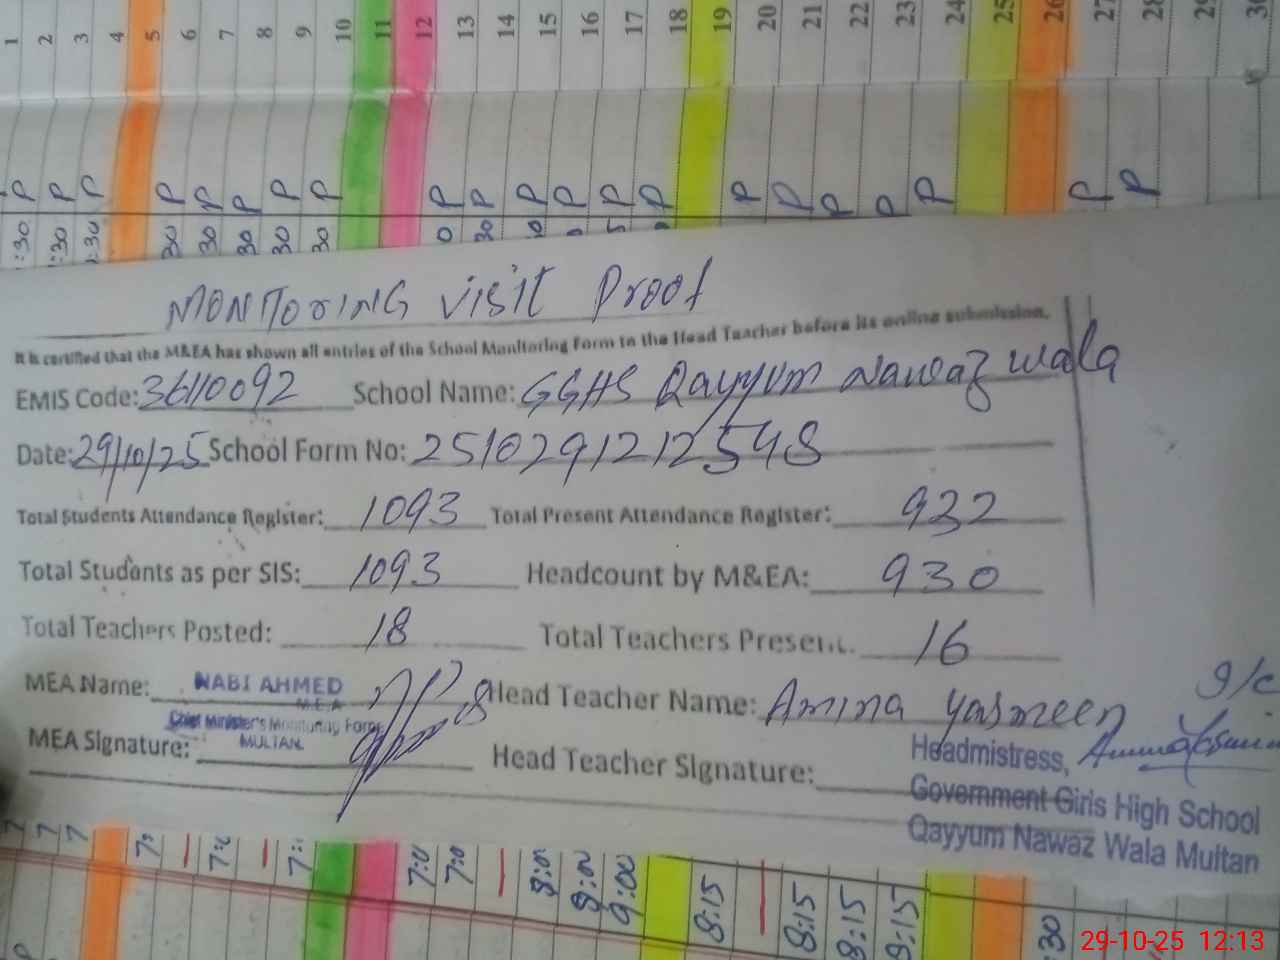 1 2 3 4 5 6 7 8 9 10 11 12 13 14 15 16 17 18 19 20 21 22 23 24 25 26 27 28 29 30
P P P P P P P P P P P P P P P P P P P P P
:30 :30 :30 30 30 30 30 30 0 30
MONITORING Visit Proof
It is certified that the M&EA has shown all entries of the School Monitoring Form to the Head Teacher before its online submission.
EMIS Code: 36110092 School Name: GGHS Qayyum Nawaz wala
Date: 29/10/25 School Form No: 2510291212548
Total Students Attendance Register: 1093 Total Present Attendance Register: 932
Total Students as per SIS: 1093 Headcount by M&EA: 930
Total Teachers Posted: 18 Total Teachers Present. 16
MEA Name: NABI AHMED Head Teacher Name: Amina Yasmeen
M.E.A
Chief Minister's Monitoring Force
MULTAN.
MEA Signature: Head Teacher Signature:
g/c
Headmistress,
Government Girls High School
Qayyum Nawaz Wala Multan
7 7 7 7: 7:0 7: 7:0 7:0 8:00 8:00 9:00 8:15 8:15 8:15 8:15
30
29-10-25 12:13